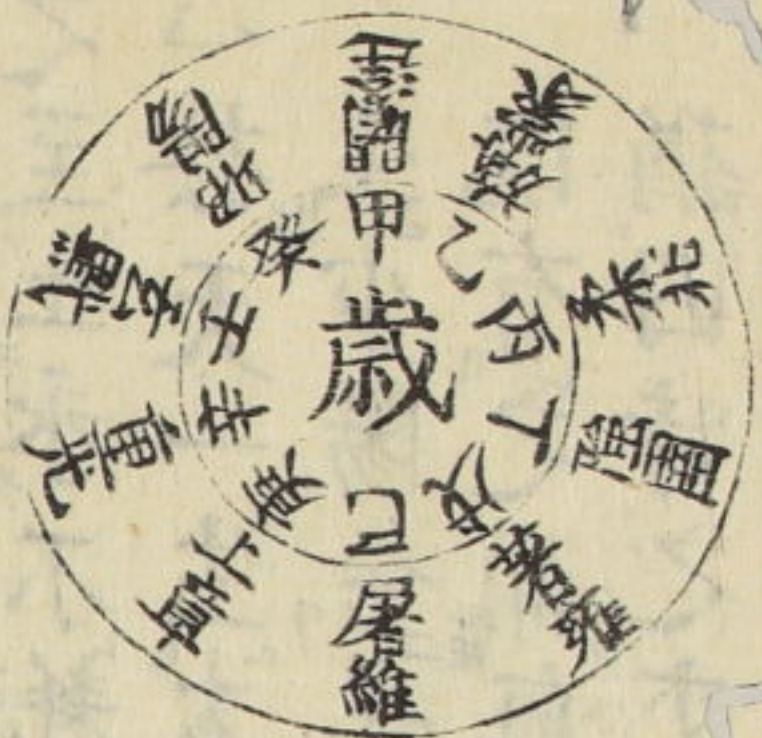 歳
甲
乙
丙
丁
戊
己
庚
辛
壬
癸
閼逢
旃蒙
柔兆
強圉
著雍
屠維
上章
重光
玄黓
昭陽